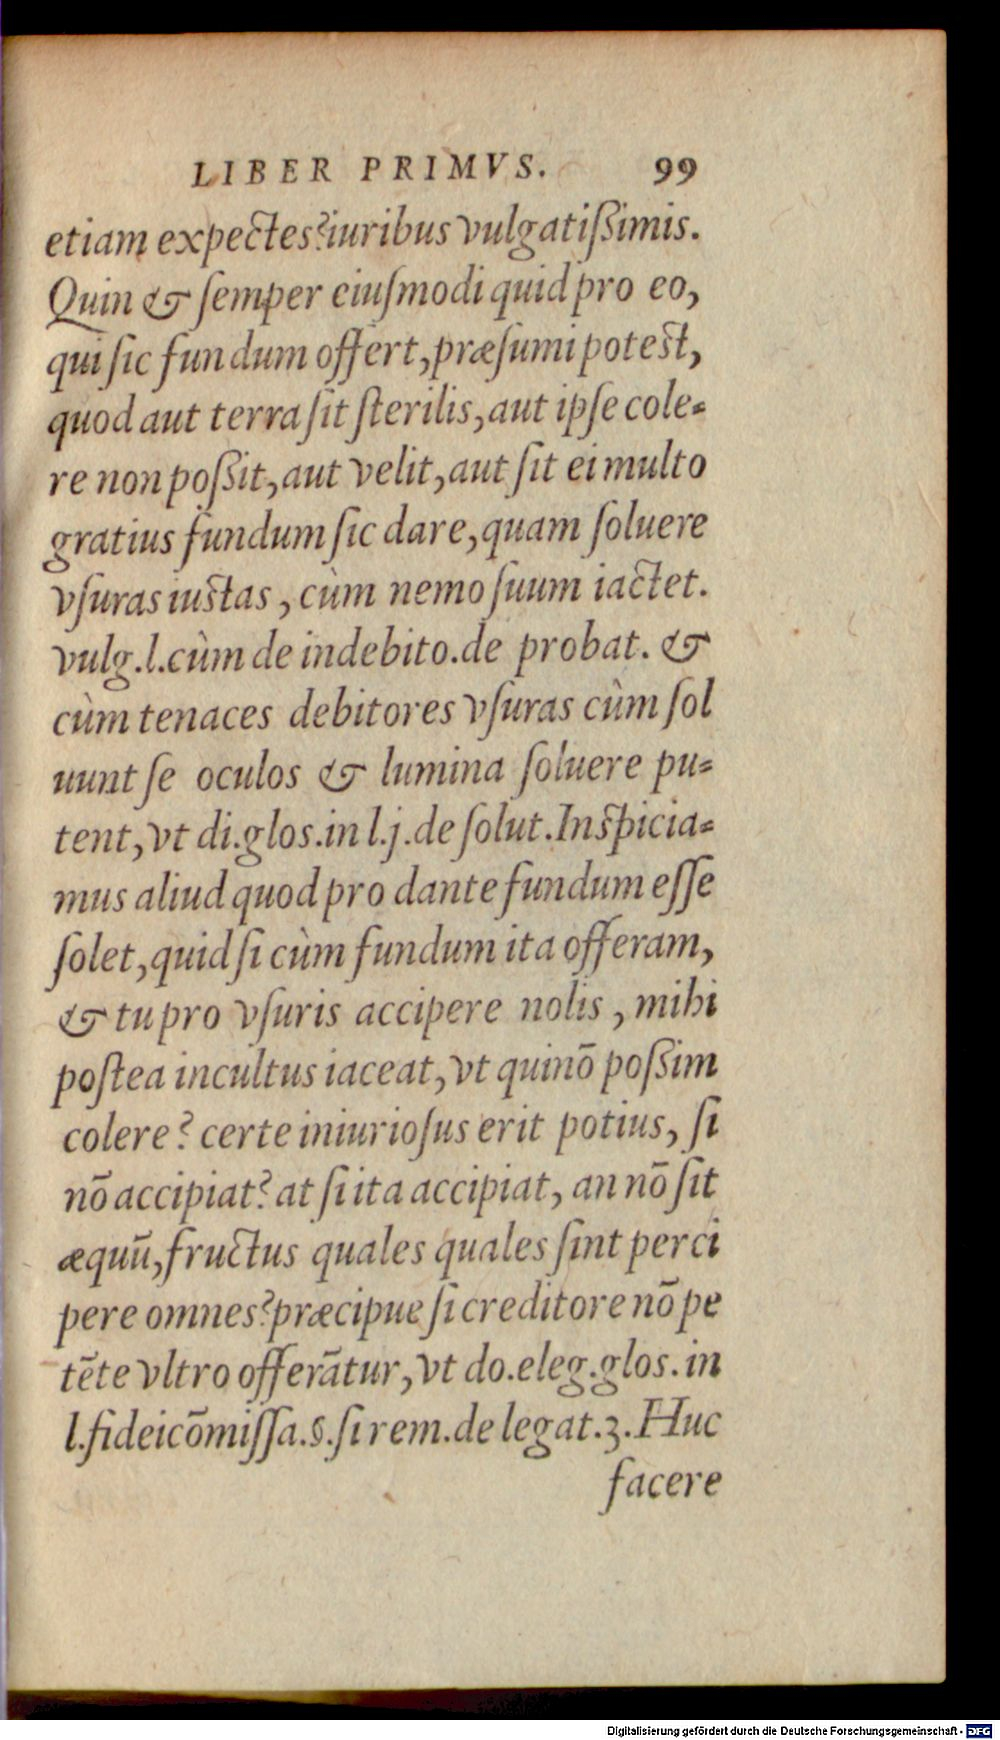 LIBER PRIMVS. 99
etiam expectes? iuribus vulgatißimis.
Quin & ſemper eiuſmodi quid pro eo,
qui ſic fundum offert, præſumi potest,
quod aut terra ſit ſterilis, aut ipſe cole=
re non poßit, aut velit, aut ſit ei multo
gratius fundum ſic dare, quam ſoluere
vſuras iustas, cùm nemo ſuum iactet.
vulg.l.cùm de indebito.de probat. &
cùm tenaces debitores vſuras cùm ſol
uunt ſe oculos & lumina ſoluere pu=
tent, vt di.glos.in l.j.de ſolut.Inspicia=
mus aliud quod pro dante fundum eſſe
ſolet, quid ſi cùm fundum ita offeram,
& tu pro vſuris accipere nolis, mihi
poſtea incultus iaceat, vt quinō poßim
colere? certe iniurioſus erit potius, ſi
nō accipiat? at ſi ita accipiat, an nō ſit
æquū, fructus quales quales ſint perci
pere omnes? præcipue ſi creditore nō pe
tēte vltro offerātur, vt do.eleg.glos.in
l.fideicōmiſſa.§.ſi rem.de legat.3.Huc
facere
Digitalisierung gefördert durch die Deutsche Forschungsgemeinschaft - DFG